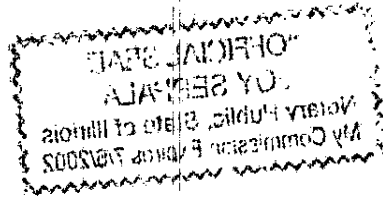 "OFFICIAL SEAL"
Notary Public, State of Illinois
My Commission Expires 7/6/2002